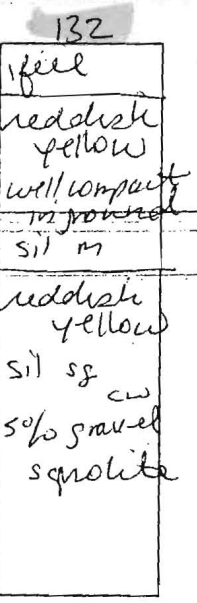 132
fill
reddish
yellow
well compact
in ground
sil m
reddish
yellow
sil sg
cw
5% gravel
saprolite